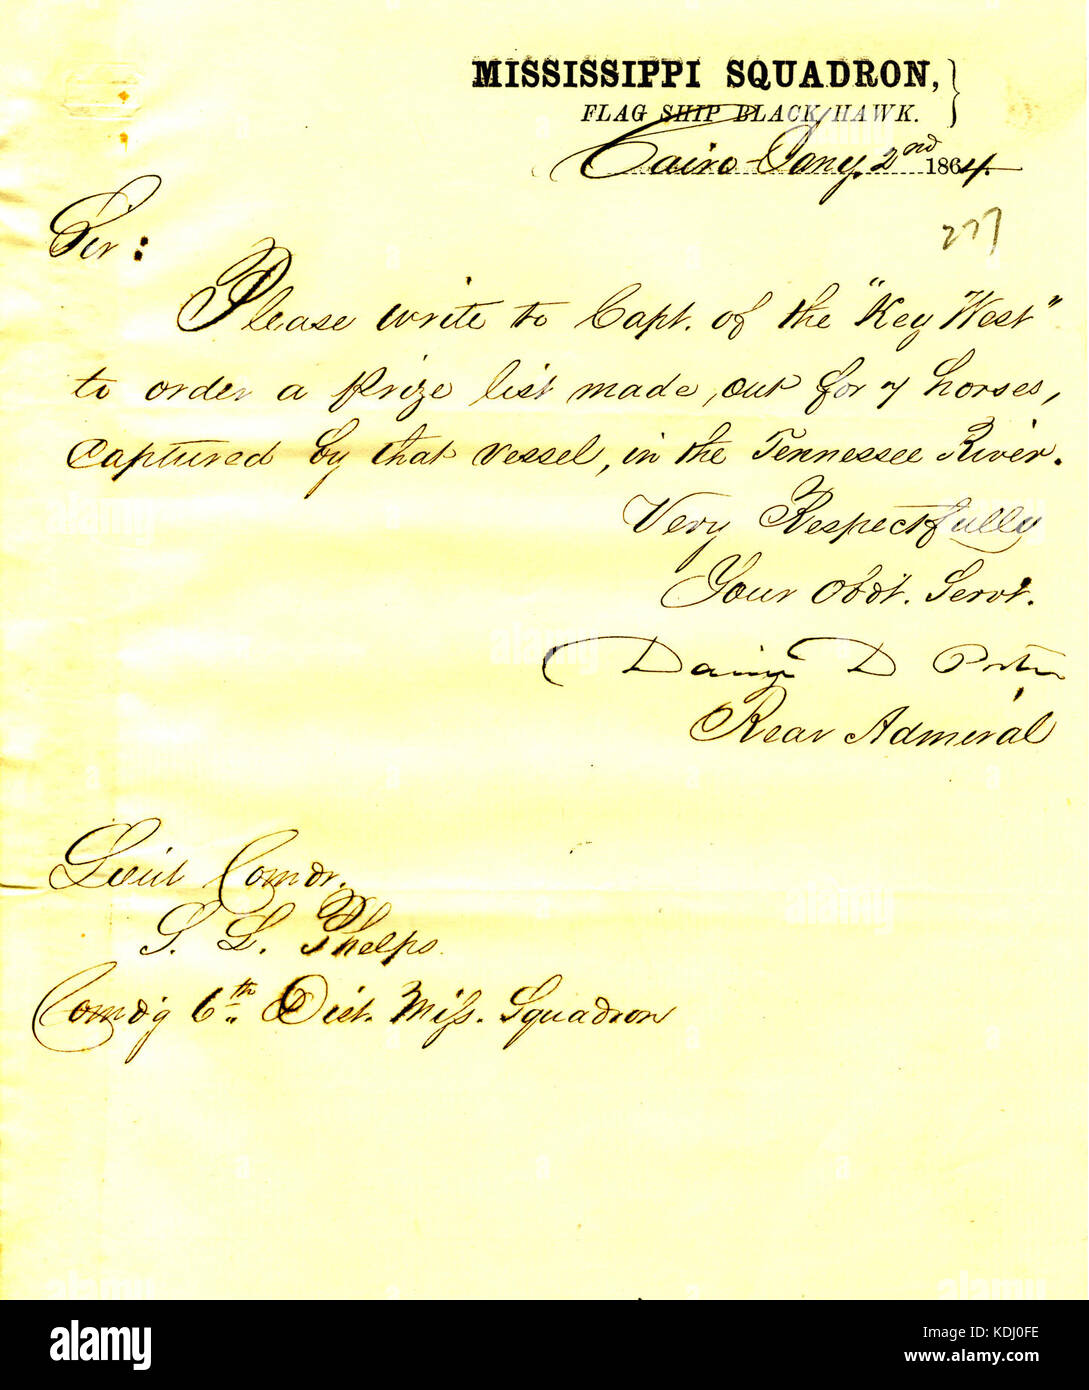 MISSISSIPPI SQUADRON,
FLAG SHIP BLACK HAWK.
Cairo Jany. 2nd 1864.
277
Sir:
Please write to Capt. of the "Key West"
to order a prize list made, out for 7 horses,
captured by that vessel, in the Tennessee River.
Very Respectfully
Your Obdt. Servt.
David D Porter
Rear Admiral
Lieut Comdr.
S. L. Phelps.
Comdg 6th Dist. Miss. Squadron
alamy
Image ID: KDJ0FE
www.alamy.com